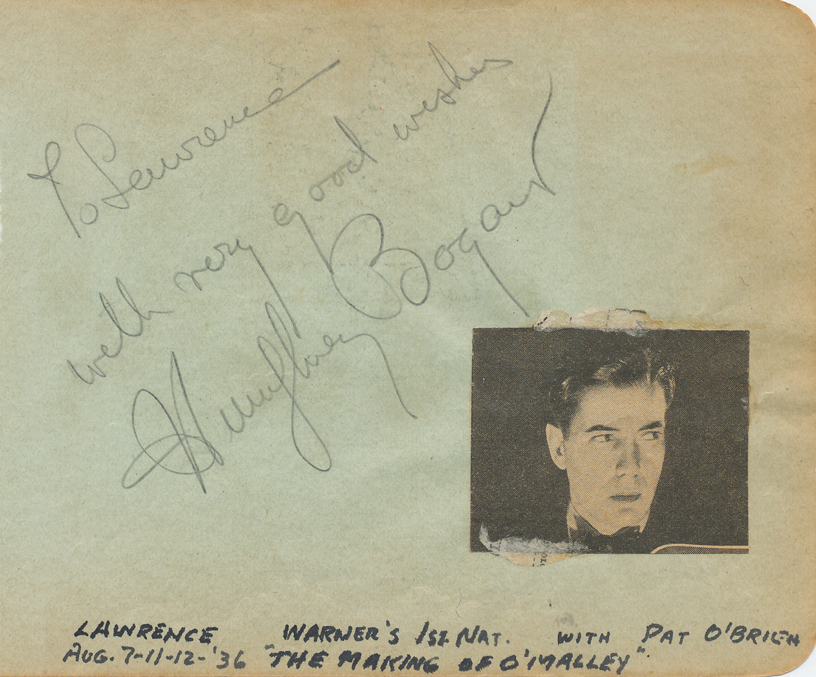 To Lawrence
with very good wishes
Humphrey Bogart
LAWRENCE WARNER'S 1st NAT. WITH PAT O'BRIEN
AUG. 7-11-12-'36 "THE MAKING OF O'MALLEY"